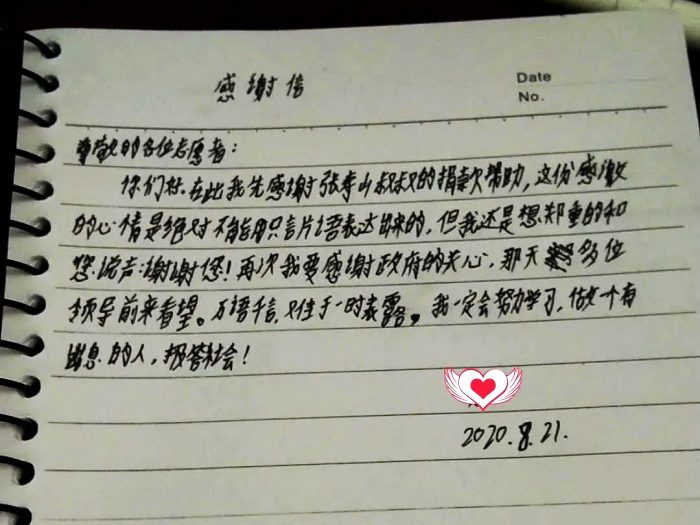 感谢信
Date
No.
尊敬的各位志愿者：
你们好.在此我先感谢张孝山叔叔的捐款帮助,这份感激
的心情是绝对不能用只言片语表达出来的,但我还是想郑重的和
您说声:谢谢您!再次我要感谢政府的关心,那天多位
领导前来看望。万语千信,只住于一时表露。我一定会努力学习,做一个有
出息的人,报答社会!
2020.8.21.